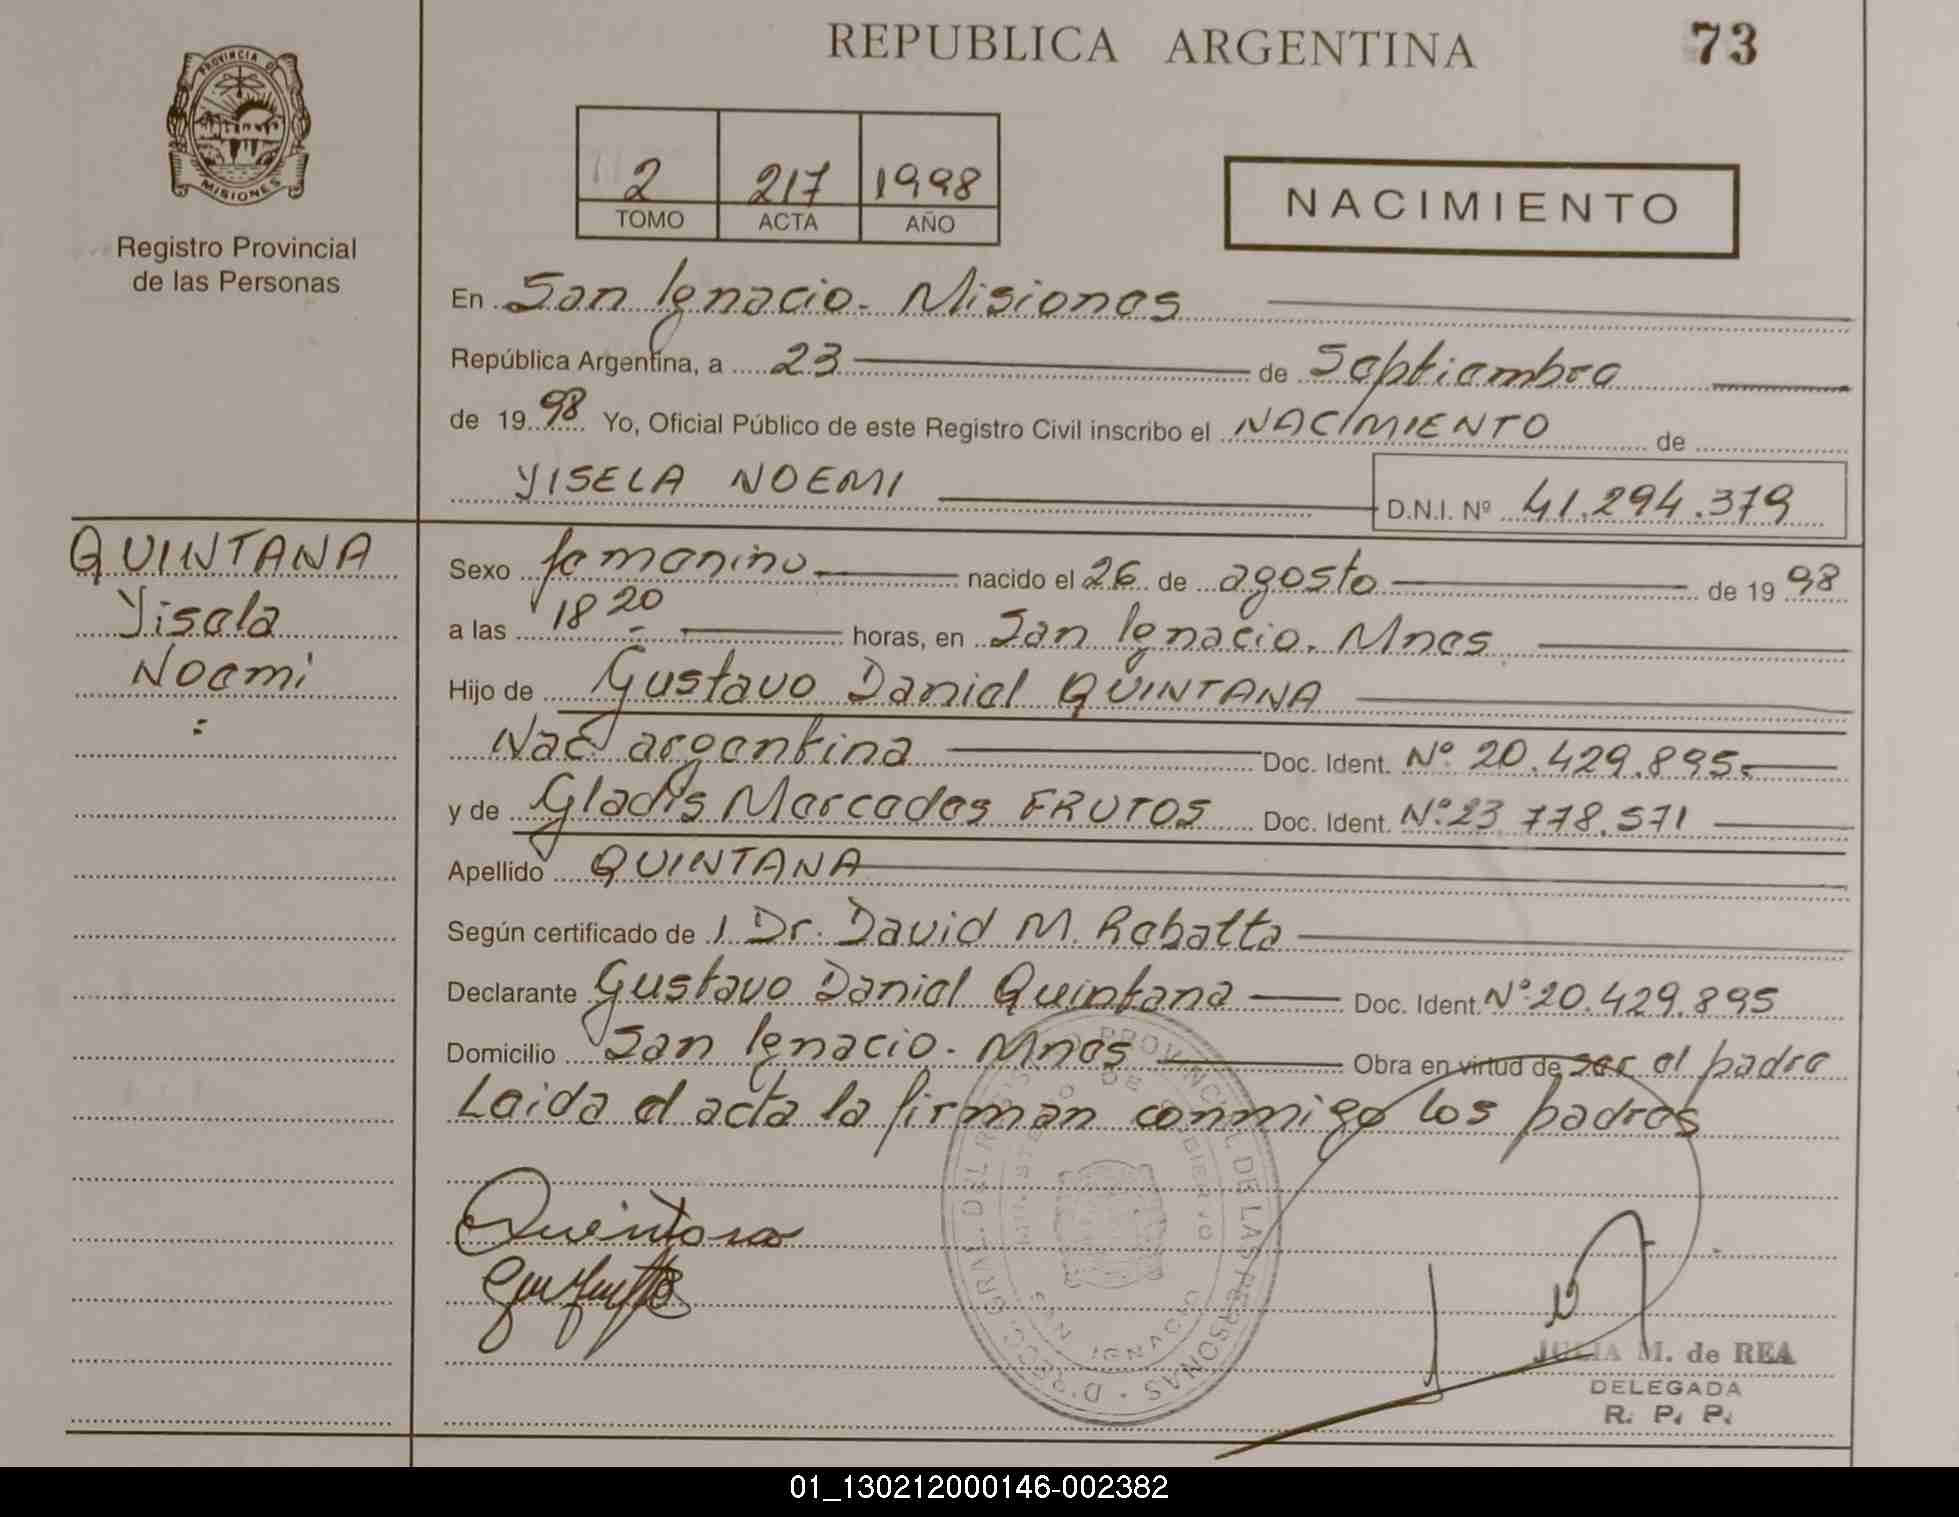 REPUBLICA ARGENTINA 73
PROVINCIA DE
MISIONES
Registro Provincial
de las Personas
2 217 1998
TOMO ACTA AÑO
NACIMIENTO
En San Ignacio. Misiones
República Argentina, a 23 de Septiembre
de 1998 Yo, Oficial Público de este Registro Civil inscribo el NACIMIENTO de
YISELA NOEMI D.N.I. Nº 41.294.379
QUINTANA
Yisela
Noemi
Sexo femenino nacido el 26 de agosto de 1998
a las 18 20 horas, en San Ignacio. Mnes
Hijo de Gustavo Daniel QUINTANA
Nac. argentina Doc. Ident. Nº 20.429.895.
y de Gladis Mercedes FRUTOS Doc. Ident. Nº 23 778.571
Apellido QUINTANA
Según certificado de l Dr. David M. Rebatta
Declarante Gustavo Daniel Quintana Doc. Ident. Nº 20.429.895
Domicilio San Ignacio. Mnes Obra en virtud de ser el padre
Leida el acta la firman conmigo los padres
Quintana
DIRECC. GRAL. DEL REGISTRO PROVINCIAL DE LAS PERSONAS
MINISTERIO DE GOBIERNO
SAN IGNACIO
JULIA M. de REA
DELEGADA
R. P. P.
01_130212000146-002382